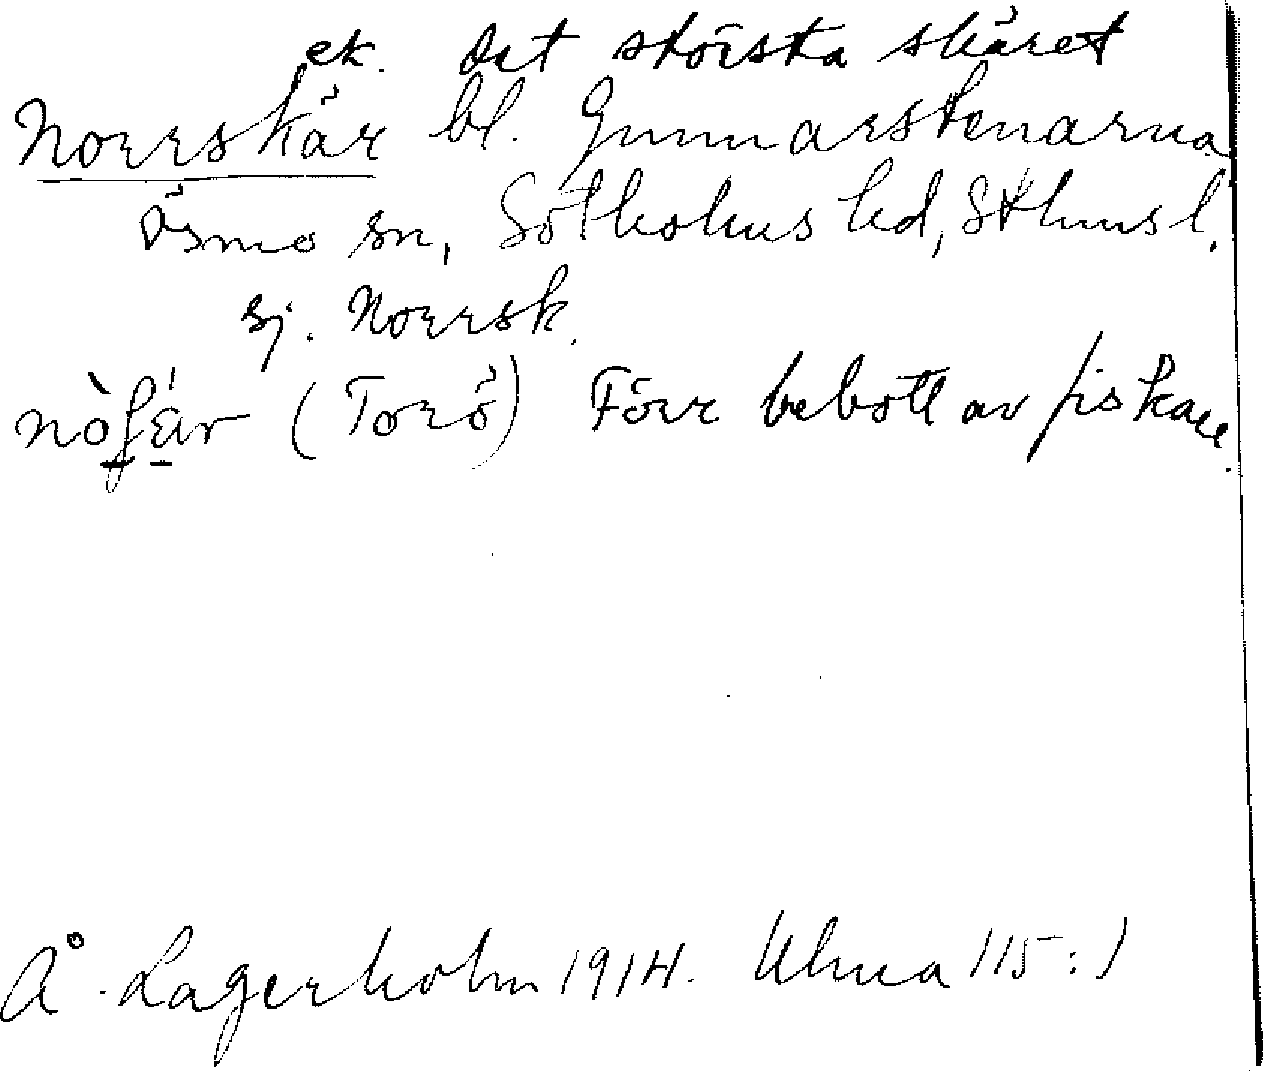 sk. det största skäret
Norrskär bl. Gunnarstenarna
Ösmo sn, Sotholms hd, Sthms l.
sj. Norrsk.
(Torö) Förr bebott av fiskare.
Å. Lagerholm 1914. Uhna 115:1